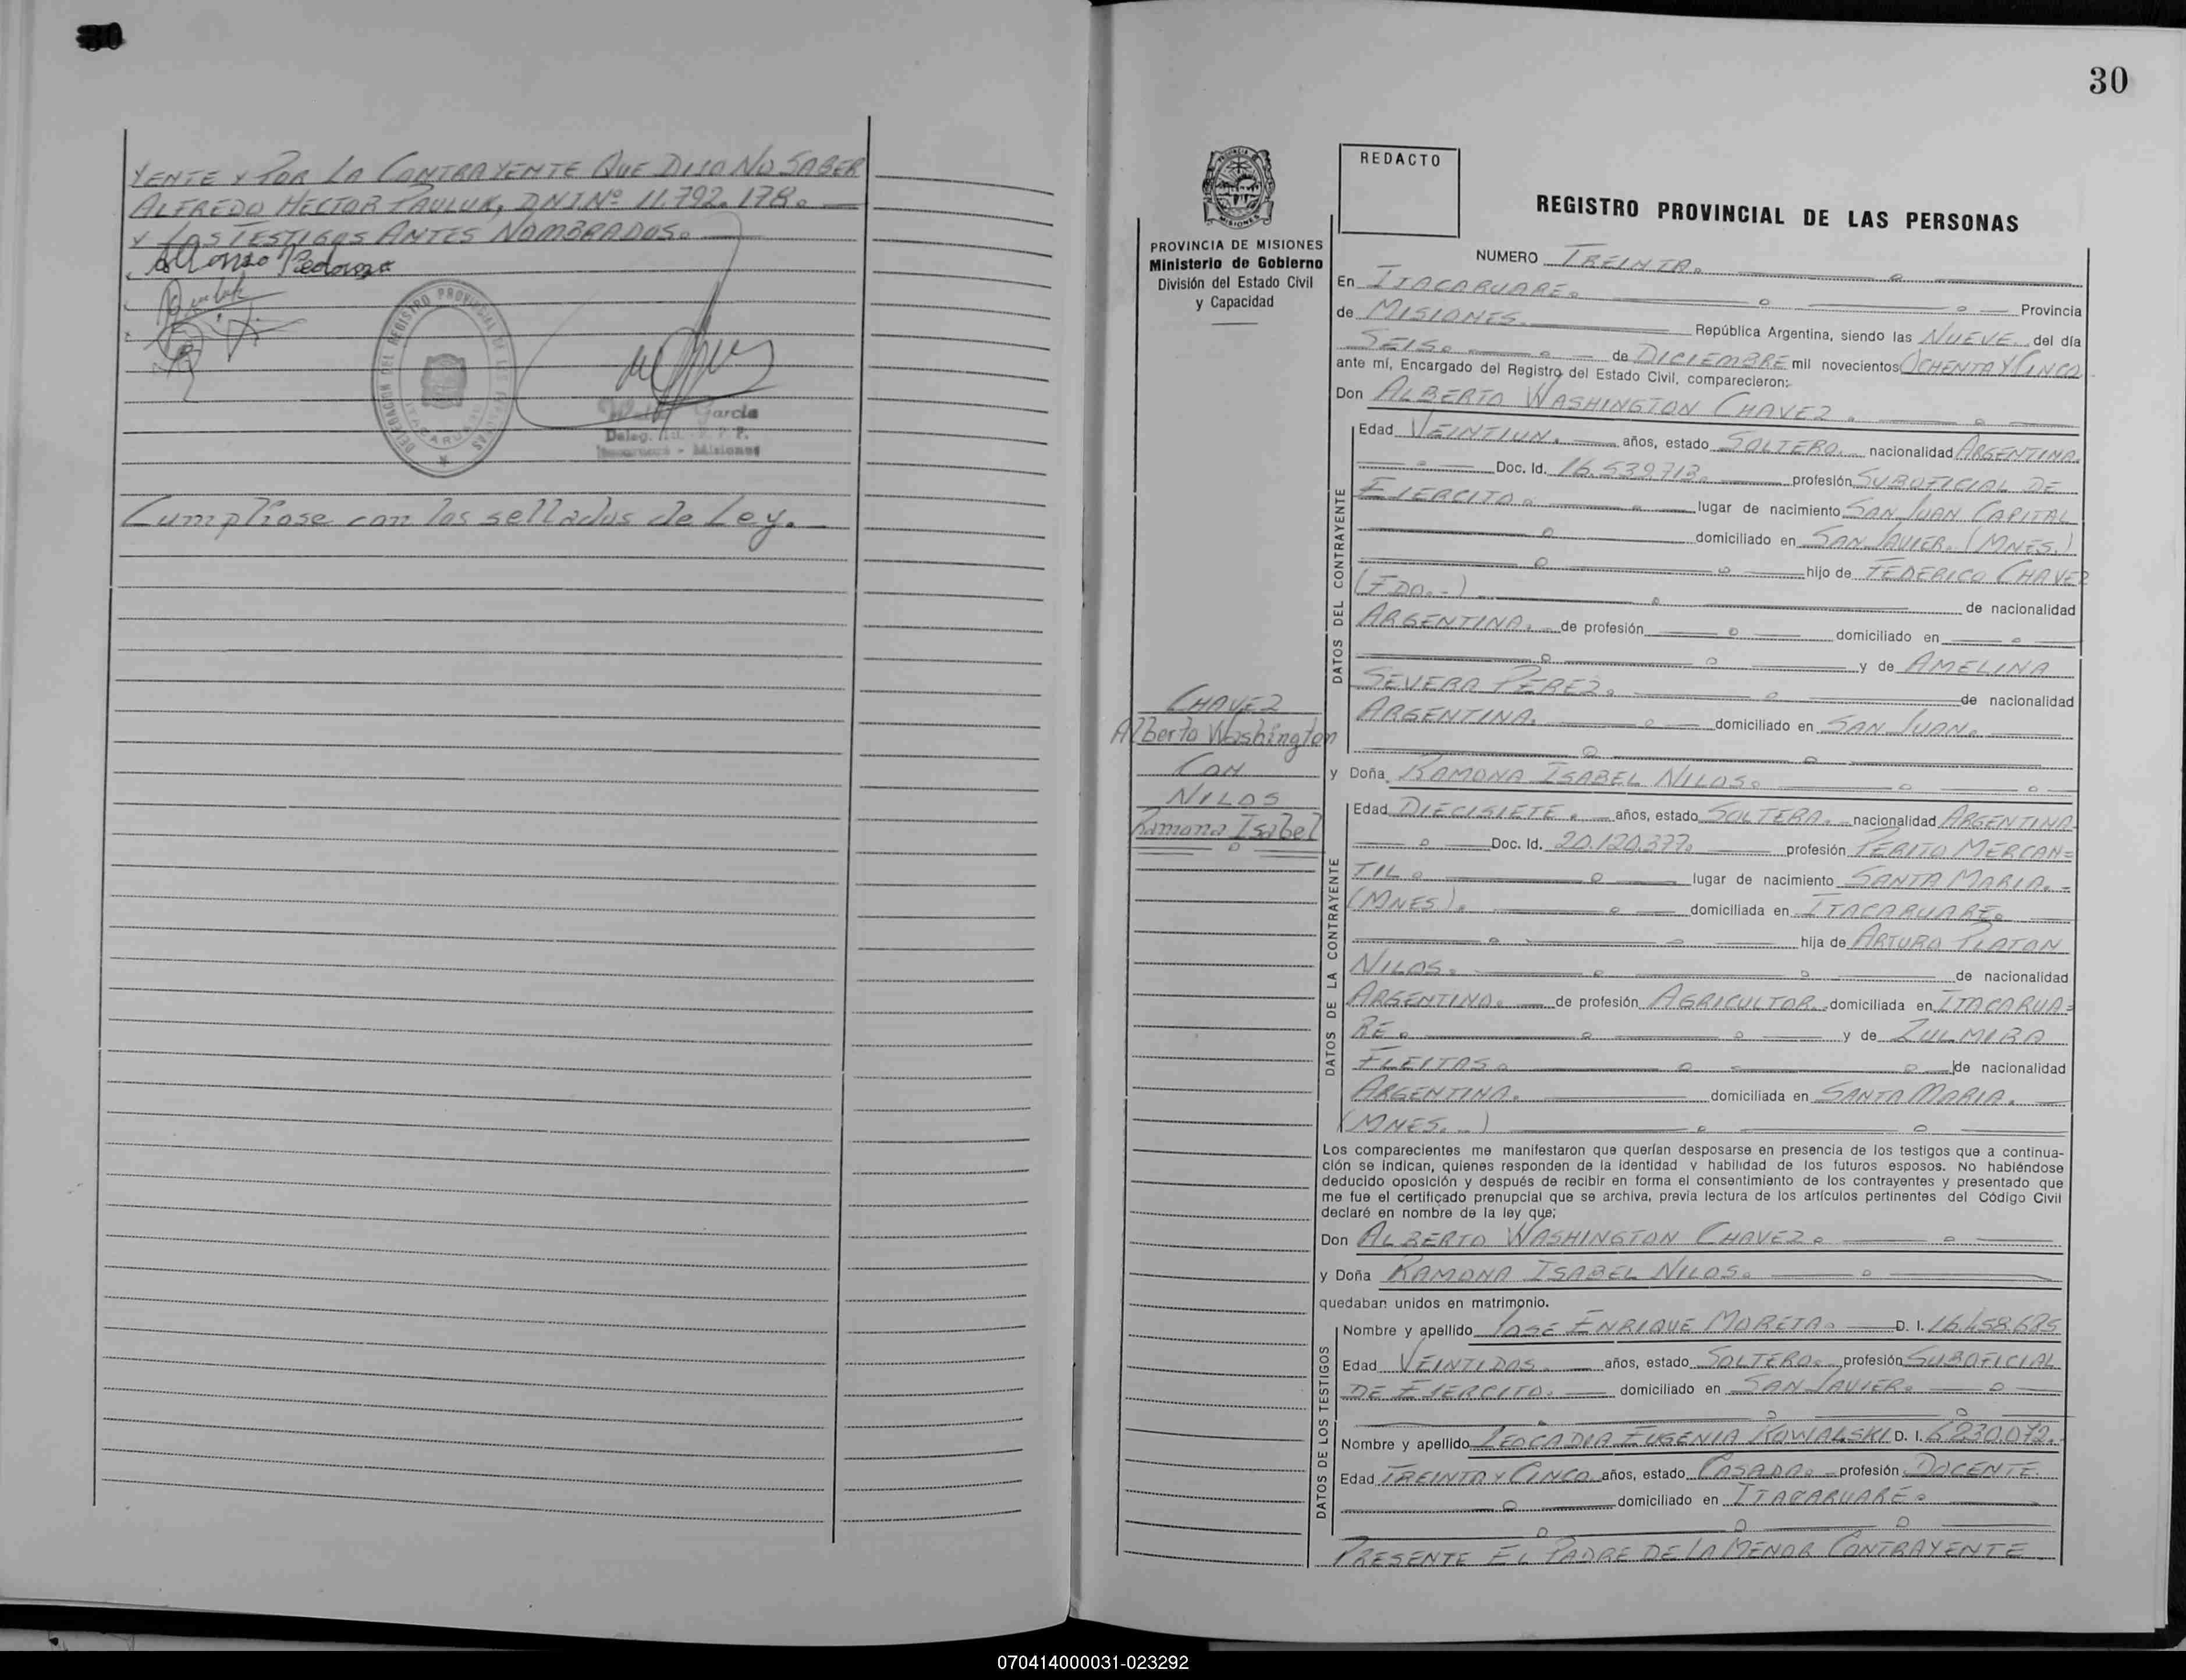 YENTE Y POR LA CONTRAYENTE QUE DIJO NO SABER
ALFREDO HECTOR PAULUK, DNI Nº 11.792.178.
Y LOS TESTIGOS ANTES NOMBRADOS.
Alfonso Pedrozo
DELEGACION DEL REGISTRO PROVINCIAL DE LAS PERSONAS
ITACARUARE
Garcia
Deleg.
Itacaruaré - Misiones
Cumpliose con los sellados de Ley.
30
REDACTO
REGISTRO PROVINCIAL DE LAS PERSONAS
MISIONES
PROVINCIA DE MISIONES
Ministerio de Gobierno
División del Estado Civil
y Capacidad
CHAVEZ
Alberto Washington
CON
NILOS
Ramona Isabel
NUMERO TREINTA.
En ITACARUARE. Provincia
de MISIONES. República Argentina, siendo las NUEVE del día
SEIS. de DICIEMBRE mil novecientos OCHENTA Y CINCO
ante mí, Encargado del Registro del Estado Civil, comparecieron:
Don ALBERTO WASHINGTON CHAVEZ.
DATOS DEL CONTRAYENTE
Edad VEINTIUN. años, estado SOLTERO. nacionalidad ARGENTINA.
Doc. Id. 16.539.713. profesión SUBOFICIAL DE
EJERCITO. lugar de nacimiento SAN JUAN CAPITAL
domiciliado en SAN JAVIER. (MNES.)
hijo de FEDERICO CHAVEZ
(FDO.-) de nacionalidad
ARGENTINA. de profesión domiciliado en
y de AMELINA
SEVERA PEREZ. de nacionalidad
ARGENTINA. domiciliado en SAN JUAN.
y Doña RAMONA ISABEL NILOS.
DATOS DE LA CONTRAYENTE
Edad DIECISIETE. años, estado SOLTERA. nacionalidad ARGENTINA
Doc. Id. 20.120.377. profesión PERITO MERCAN=
TIL. lugar de nacimiento SANTA MARIA.-
(MNES). domiciliada en ITACARUARE.
hija de ARTURO PLATON
NILOS. de nacionalidad
ARGENTINA. de profesión AGRICULTOR. domiciliada en ITACARUA=
RE. y de ZULMIRA
FLEITAS. de nacionalidad
ARGENTINA. domiciliada en SANTA MARIA.
(MNES.-)
Los comparecientes me manifestaron que querían desposarse en presencia de los testigos que a continua-
ción se indican, quienes responden de la identidad y habilidad de los futuros esposos. No habiéndose
deducido oposición y después de recibir en forma el consentimiento de los contrayentes y presentado que
me fue el certificado prenupcial que se archiva, previa lectura de los artículos pertinentes del Código Civil
declaré en nombre de la ley que;
Don ALBERTO WASHINGTON CHAVEZ.
y Doña RAMONA ISABEL NILOS.
quedaban unidos en matrimonio.
DATOS DE LOS TESTIGOS
Nombre y apellido JOSE ENRIQUE MORETA. D. I. 16.458.685
Edad VEINTIDOS. años, estado SOLTERO. profesión SUBOFICIAL
DE EJERCITO. domiciliado en SAN JAVIER.
Nombre y apellido LEOCADIA EUGENIA KOWALSKI D. I. 6.230.072.
Edad TREINTA Y CINCO años, estado CASADA. profesión DOCENTE.
domiciliado en ITACARUARE.
PRESENTE EL PADRE DE LA MENOR CONTRAYENTE
070414000031-023292